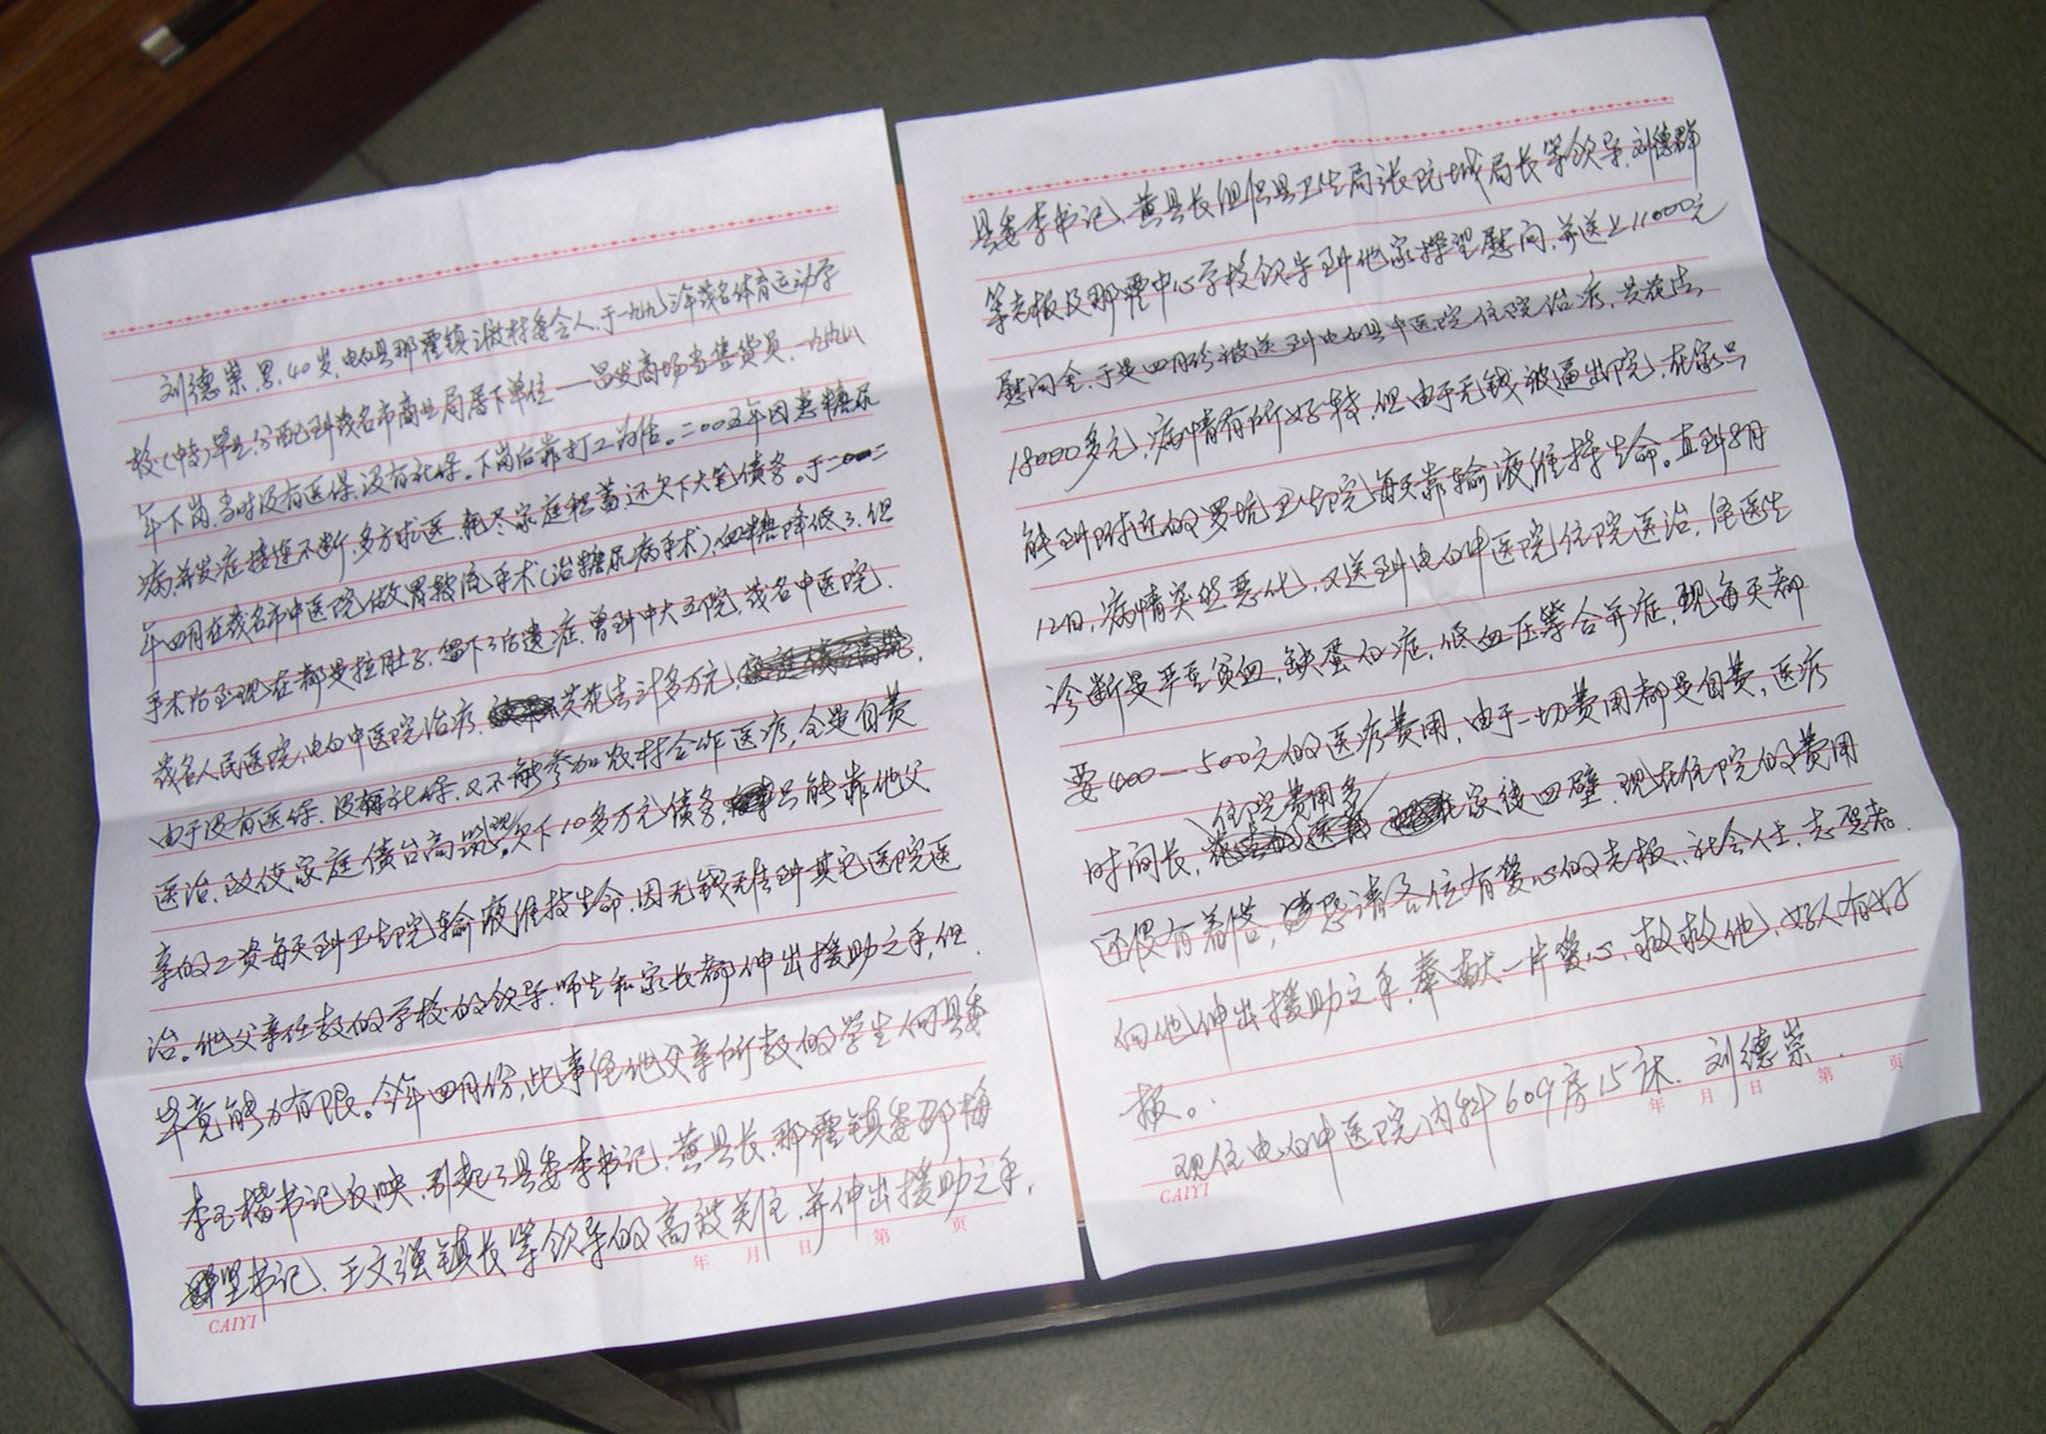 刘德崇,男,40岁,电白县那霍镇村委会人,于一九九三年茂名体育运动学
校(中专)毕业,分配到茂名市商业局属下单位——昌发商场当售货员,一九九八
年下岗,当时没有医保,没有社保。下岗后靠打工为估。二00五年因患糖尿
病,并发症接连不断,多方求医,耗尽家庭积蓄,还欠下大笔债务。于二00二
年四月在茂名市中医院做胃转流手术(治糖尿病手术),血糖降低了,但
手术治至现在都是拉肚子,留下了后遗症,曾到中大五院,茂名中医院,
茂名人民医院,电白中医院治疗,共花去计多万元,
由于没有医保,没有社保,又不能参加农村合作医疗,全是自费
医治,致使家庭债台高筑,现欠下10多万元债务,只能靠他父
亲的工资每天到卫生院输液维持生命,因无钱无法到其它医院医
治。他父亲任教的学校的领导,师生和家长都伸出援助之手,但
毕竟能力有限。今年四月份,此事经他父亲所教的学生向县委
李玉楷书记反映,引起了县委李书记,黄县长,那霍镇委邵梅
坚书记,王文强镇长等领导的高致关注,并伸出援助之手,
年 月 日 第 页
CAIYI
县委李书记,黄县长组织县卫生局张阮城局长等领导,刘德群
等老板及那霍中心学校领导到他家探望慰问,并送上11000元
慰问金,于是四月份被送到电白县中医院住院治疗,共花去
18000多元,病情有所好转,但由于无钱被逼出院,在家只
能到附近的罗坑卫生院每天靠输液维持生命。直到8月
12日,病情突然恶化,又送到电白中医院住院医治,经医生
诊断是严重贫血,缺蛋白症,低血压等合并症,现每天都
要400—500元的医疗费用,由于一切费用都是自费,医疗
时间长,住院费用多,家徒四壁,现在住院的费用
还没有着落,恳请各位有爱心的老板,社会人士,志愿者,
向他伸出援助之手,奉献一片爱心,救救他,好人有好
报。
现住电白中医院内科609房15床,刘德崇
年 月 日 第 页
CAIYI